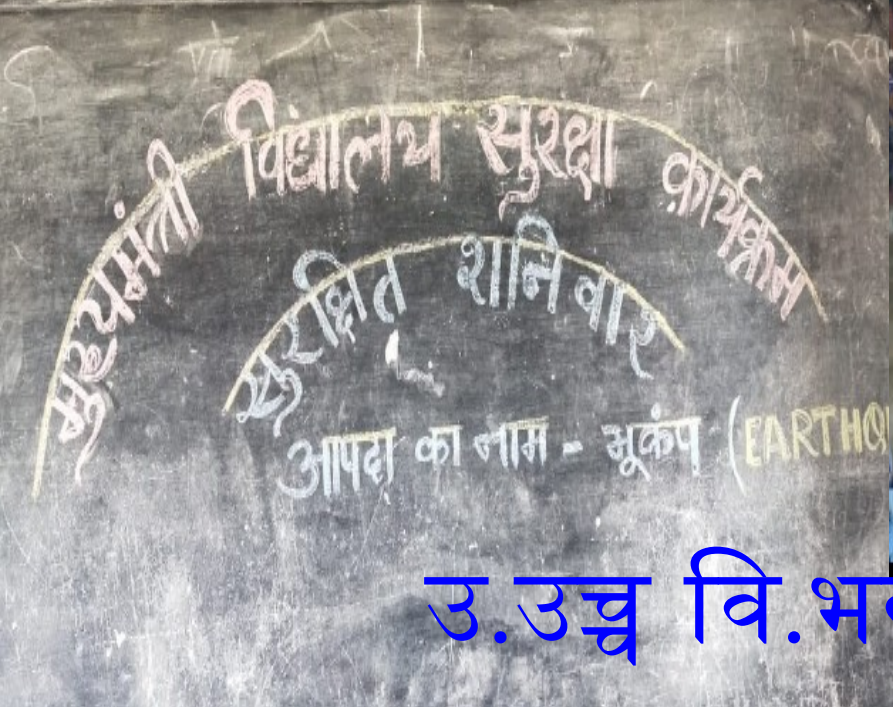 मुख्यमंत्री विद्यालय सुरक्षा कार्यक्रम
सुरक्षित शनिवार
आपदा का नाम - भूकंप (EARTHQ
उ.उच्च वि.भ